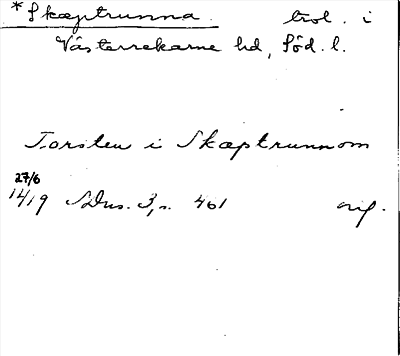 *Skæptrunna. trol. i
Västerrekarne hd, Söd. l.
Torsten i Skæptrunnom
27/6
1419 SDns. 3, s. 461 orig.